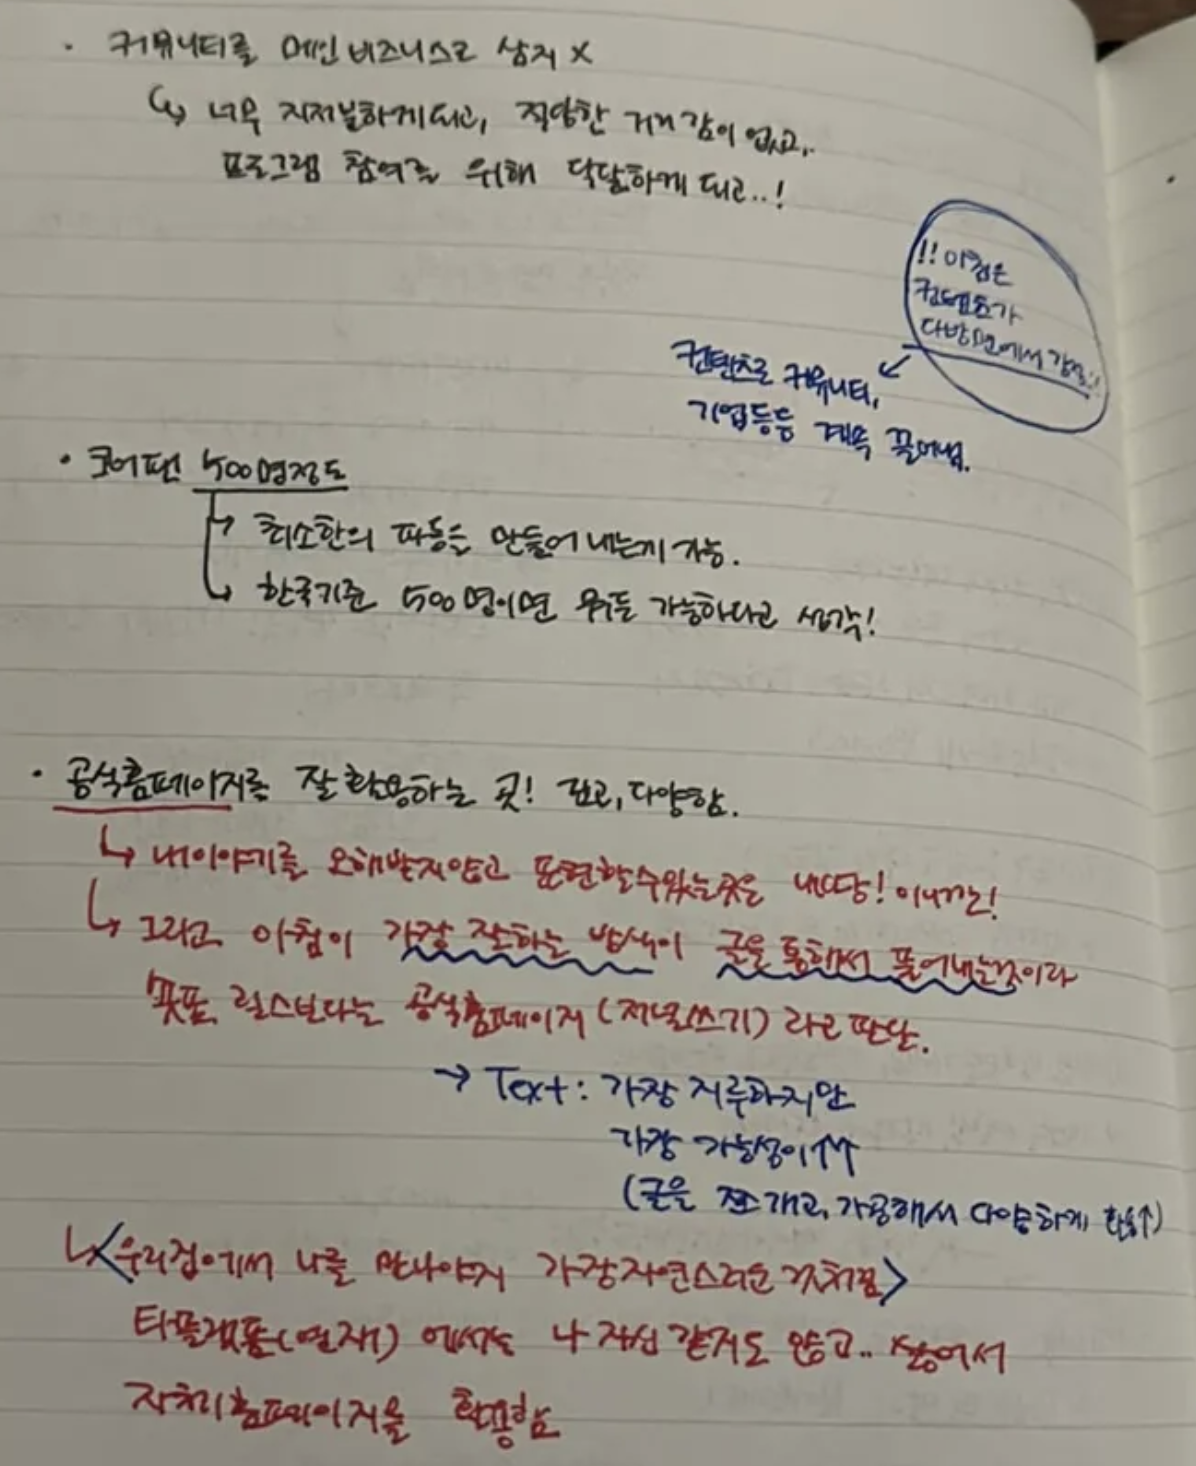 · 커뮤니티를 메인 비즈니스로 삼지 X
↳ 너무 지저분하게 되고, 적당한 거리감이 없고,
프로그램 참여를 위해 닥달하게 되고..!
!! 아침은
컨텐츠가
다방면에서 강함!!
컨텐츠로 커뮤니티,
기업등등 계속 끌어냄.
· 코어팬 500명정도
↳ 최소한의 파동을 만들어내는게 가능.
↳ 한국기준 500명이면 뭐든 가능하다고 생각!
· 공식홈페이지를 잘 활용하는 곳! 깊고, 다양함.
↳ 내이야기를 오해받지않고 표현할수있는곳은 내땅! 이니깐!
↳ 그리고 아침이 가장 잘하는 방식이 글을 통해서 풀어내는것이라
숏폼, 릴스보다는 공식홈페이지 (저널쓰기) 라고 판단.
→ Text : 가장 지루하지만
가장 가능성이↑↑
(글을 쪼개고, 가공해서 다양하게 활용↑)
↳ <우리집에서 나를 만나야지 가장자연스러운 것처럼>
타플랫폼(연재) 에서는 나 자신 같지도 않고.. 싫어서
자체홈페이지을 활용함